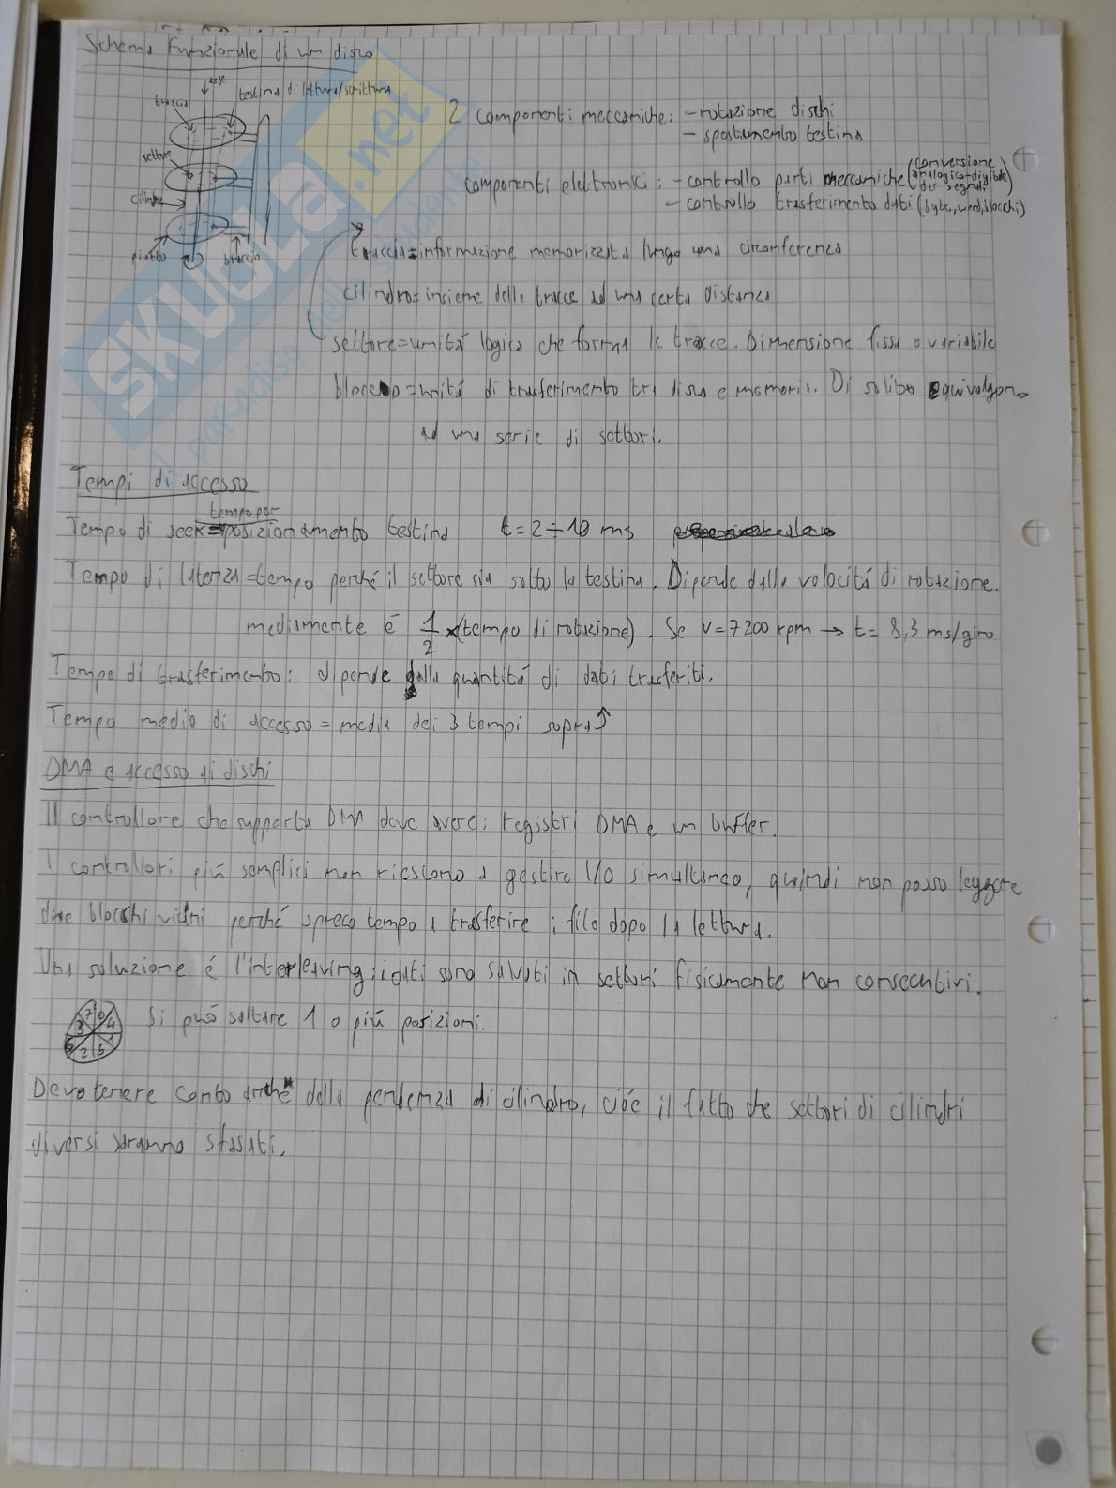 Schema funzionale di un disco
asse
traccia
testina di lettura/scrittura
settore
cilindro
piatto
braccio
2 componenti meccaniche: - rotazione dischi
- spostamento testina
componenti elettronici: - controllo parti meccaniche (conversione analogico-digitale dei segnali)
- controllo trasferimento dati (byte, word, blocchi)
traccia = informazione memorizzata lungo una circonferenza
cilindro = insieme delle tracce ad una certa distanza
settore = unità logica che forma le tracce. Dimensione fissa o variabile
blocco = unità di trasferimento tra disco e memoria. Di solito equivalgono
ad una serie di settori.
Tempi di accesso
Tempo di seek = tempo per posizionamento testina t = 2 ÷ 10 ms
Tempo di latenza = tempo perché il settore sia sotto la testina. Dipende dalla velocità di rotazione.
mediamente é 1/2 x (tempo di rotazione). Se v = 7200 rpm → t = 8,3 ms/giro
Tempo di trasferimento: dipende dalla quantitá di dati trasferiti.
Tempo medio di accesso = media dei 3 tempi sopra ↑
DMA e accesso ai dischi
Il controllore che supporta DMA deve avere: registri DMA e un buffer.
I controllori piú semplici non riescono a gestire I/O simultaneo, quindi non posso leggere
due blocchi vicini perché spreco tempo a trasferire i file dopo la lettura.
Una soluzione é l'interleaving: i dati sono salvati in settori fisicamente non consecutivi.
7 0
3 4
6 1
2 5
Si può saltare 1 o piú posizioni.
Devo tenere conto anche della pendenza di cilindro, cioé il fatto che settori di cilindri
diversi saranno sfasati.
SKUOLA.net